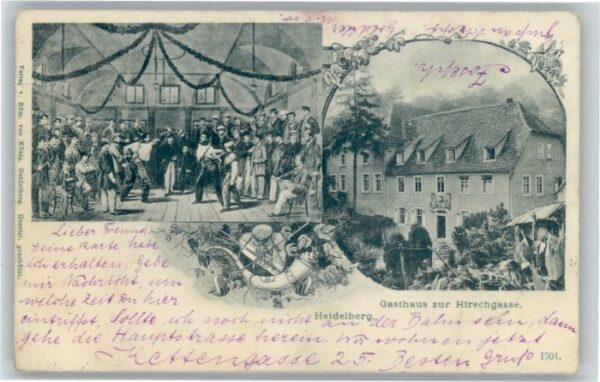 Verlag v. Edm. von König, Heidelberg. Gesetzl. geschützt.
Gasthaus zur Hirschgasse.
Heidelberg.
1701.
Lieber Freund.
Deine Karte habe
ich erhalten. Gebe
mir Nachricht, um
welche Zeit Du hier
eintriffst. Sollte ich noch nicht an der Bahn sein, dann
gehe die Hauptstrasse herein. Wir wohnen jetzt
Kettengasse 25. Besten Gruß
Joseph
Gruß an